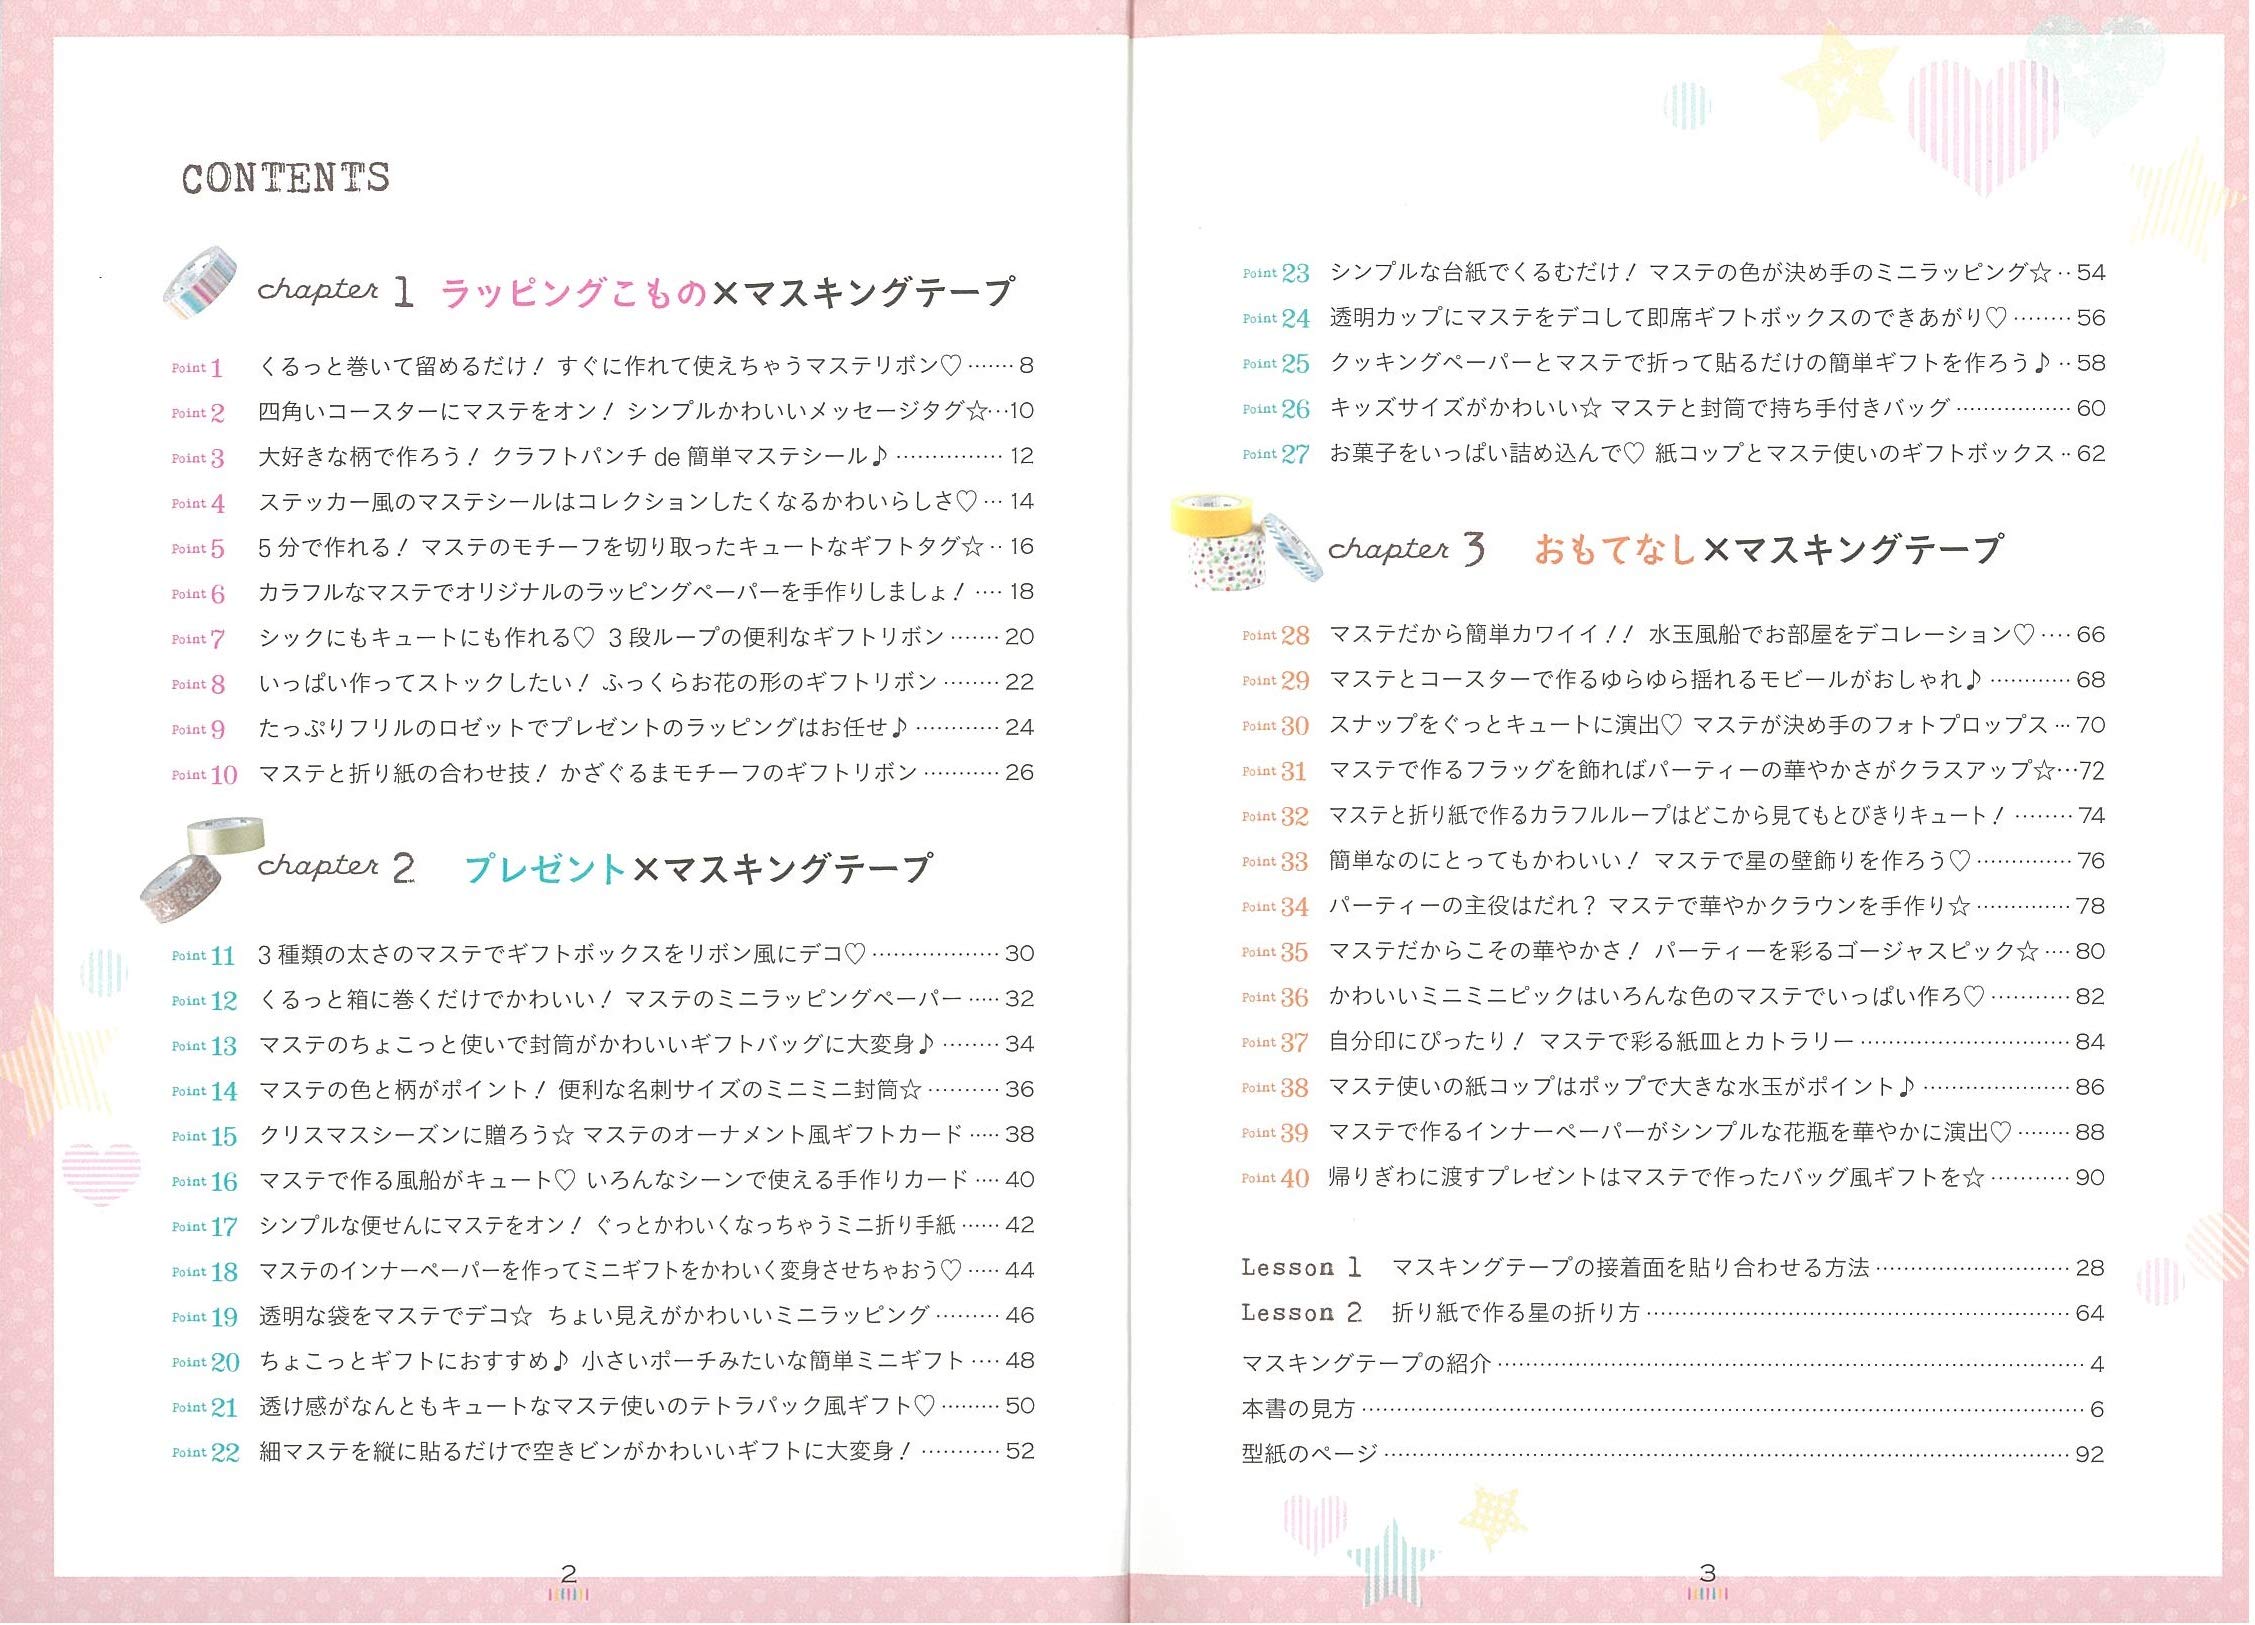 CONTENTS
chapter 1 ラッピングこもの×マスキングテープ
Point 1 くるっと巻いて留めるだけ！ すぐに作れて使えちゃうマステリボン♡ ……· 8
Point 2 四角いコースターにマステをオン！ シンプルかわいいメッセージタグ☆…10
Point 3 大好きな柄で作ろう！ クラフトパンチ de 簡単マステシール♪ …………… 12
Point 4 ステッカー風のマステシールはコレクションしたくなるかわいらしさ♡ … 14
Point 5 5分で作れる！ マステのモチーフを切り取ったキュートなギフトタグ☆ ·· 16
Point 6 カラフルなマステでオリジナルのラッピングペーパーを手作りしましょ！ ···· 18
Point 7 シックにもキュートにも作れる♡ 3段ループの便利なギフトリボン ……· 20
Point 8 いっぱい作ってストックしたい！ ふっくらお花の形のギフトリボン ……·· 22
Point 9 たっぷりフリルのロゼットでプレゼントのラッピングはお任せ♪ ………… 24
Point 10 マステと折り紙の合わせ技！ かざぐるまモチーフのギフトリボン ………·· 26
chapter 2 プレゼント×マスキングテープ
Point 11 3種類の太さのマステでギフトボックスをリボン風にデコ♡ ……………… 30
Point 12 くるっと箱に巻くだけでかわいい！ マステのミニラッピングペーパー ····· 32
Point 13 マステのちょこっと使いで封筒がかわいいギフトバッグに大変身♪ ……·· 34
Point 14 マステの色と柄がポイント！ 便利な名刺サイズのミニミニ封筒☆ ………· 36
Point 15 クリスマスシーズンに贈ろう☆ マステのオーナメント風ギフトカード ····· 38
Point 16 マステで作る風船がキュート♡ いろんなシーンで使える手作りカード ···· 40
Point 17 シンプルな便せんにマステをオン！ ぐっとかわいくなっちゃうミニ折り手紙 …… 42
Point 18 マステのインナーペーパーを作ってミニギフトをかわいく変身させちゃおう♡ ····· 44
Point 19 透明な袋をマステでデコ☆ ちょい見えがかわいいミニラッピング ……… 46
Point 20 ちょこっとギフトにおすすめ♪ 小さいポーチみたいな簡単ミニギフト ···· 48
Point 21 透け感がなんともキュートなマステ使いのテトラパック風ギフト♡ ……… 50
Point 22 細マステを縦に貼るだけで空きビンがかわいいギフトに大変身！ ………·· 52
2
Point 23 シンプルな台紙でくるむだけ！ マステの色が決め手のミニラッピング☆ ·· 54
Point 24 透明カップにマステをデコして即席ギフトボックスのできあがり♡ ……·· 56
Point 25 クッキングペーパーとマステで折って貼るだけの簡単ギフトを作ろう♪ ·· 58
Point 26 キッズサイズがかわいい☆ マステと封筒で持ち手付きバッグ ……………·· 60
Point 27 お菓子をいっぱい詰め込んで♡ 紙コップとマステ使いのギフトボックス ·· 62
chapter 3 おもてなし×マスキングテープ
Point 28 マステだから簡単カワイイ！！ 水玉風船でお部屋をデコレーション♡ ···· 66
Point 29 マステとコースターで作るゆらゆら揺れるモビールがおしゃれ♪ ………… 68
Point 30 スナップをぐっとキュートに演出♡ マステが決め手のフォトプロップス … 70
Point 31 マステで作るフラッグを飾ればパーティーの華やかさがクラスアップ☆…72
Point 32 マステと折り紙で作るカラフルループはどこから見てもとびきりキュート！ ……·· 74
Point 33 簡単なのにとってもかわいい！ マステで星の壁飾りを作ろう♡ ………….. 76
Point 34 パーティーの主役はだれ？ マステで華やかクラウンを手作り☆ ………….. 78
Point 35 マステだからこその華やかさ！ パーティーを彩るゴージャスピック☆ ···· 80
Point 36 かわいいミニミニピックはいろんな色のマステでいっぱい作ろ♡ ………·· 82
Point 37 自分印にぴったり！ マステで彩る紙皿とカトラリー ………………………… 84
Point 38 マステ使いの紙コップはポップで大きな水玉がポイント♪ ………………… 86
Point 39 マステで作るインナーペーパーがシンプルな花瓶を華やかに演出♡ ……· 88
Point 40 帰りぎわに渡すプレゼントはマステで作ったバッグ風ギフトを☆ ………·· 90
Lesson 1 マスキングテープの接着面を貼り合わせる方法 ……………………… 28
Lesson 2 折り紙で作る星の折り方 ……………………………………………… 64
マスキングテープの紹介 ………………………………………………………… 4
本書の見方 ……………………………………………………………………… 6
型紙のページ …………………………………………………………………… 92
3